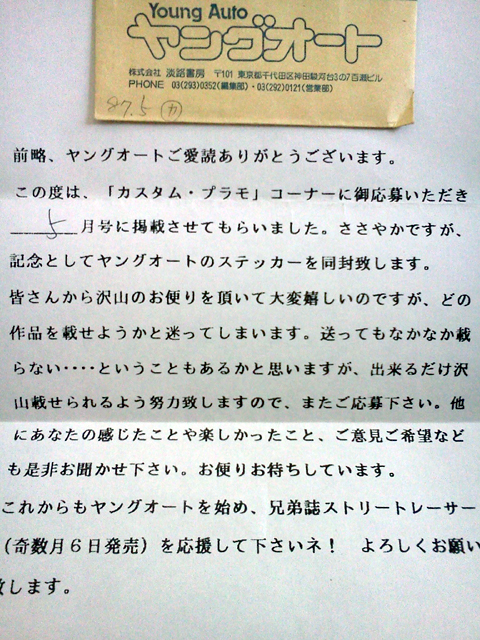 Young Auto
ヤングオート
株式会社 淡路書房 〒101 東京都千代田区神田駿河台3の7百瀬ビル
PHONE 03(293)0352(編集部)・03(292)0121(営業部)
87.5 カ
前略、ヤングオートご愛読ありがとうございます。
この度は、「カスタム・プラモ」コーナーに御応募いただき
5月号に掲載させてもらいました。ささやかですが、
記念としてヤングオートのステッカーを同封致します。
皆さんから沢山のお便りを頂いて大変嬉しいのですが、どの
作品を載せようかと迷ってしまいます。送ってもなかなか載
らない‥‥ということもあるかと思いますが、出来るだけ沢
山載せられるよう努力致しますので、またご応募下さい。他
にあなたの感じたことや楽しかったこと、ご意見ご希望など
も是非お聞かせ下さい。お便りお待ちしています。
これからもヤングオートを始め、兄弟誌ストリートレーサー
(奇数月6日発売)を応援して下さいネ! よろしくお願い
致します。